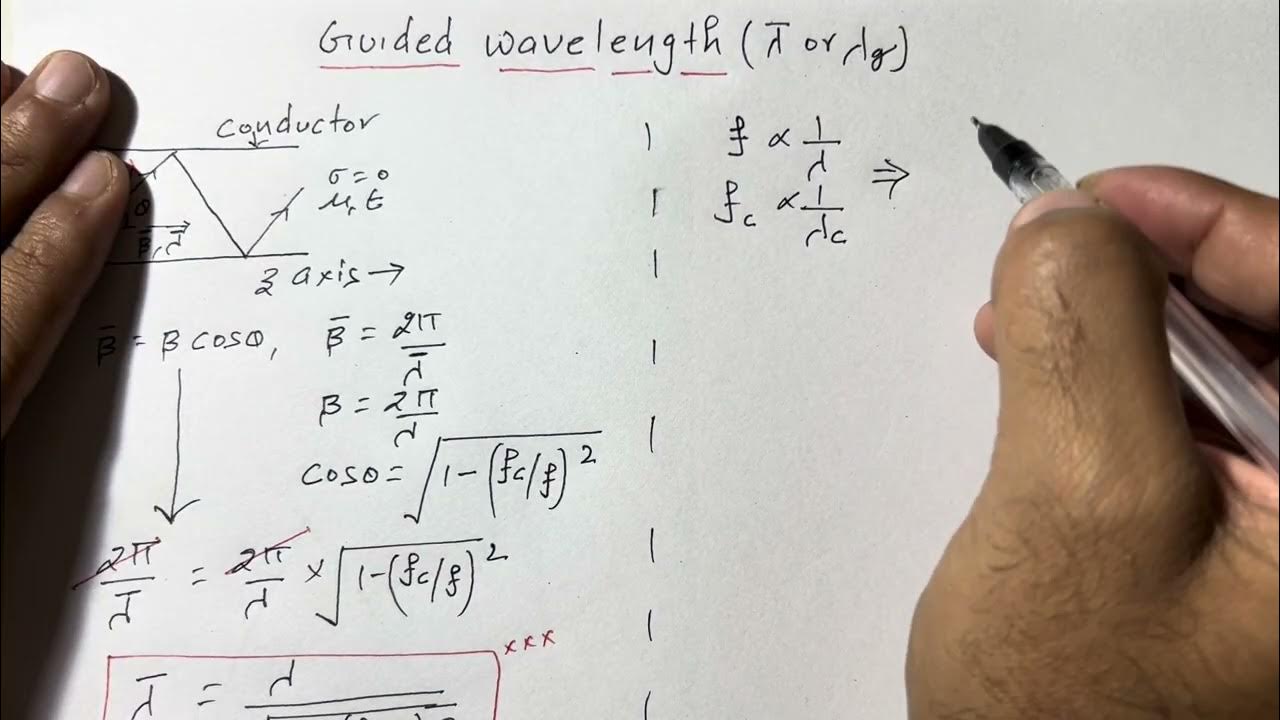 Guided wavelength (λ̄ or λg)
conductor
σ=0
μ, ε
θ
β̄, λ̄
z axis →
β̄ = β cosθ, β̄ = 2π/λ̄
β = 2π/λ
cosθ = √(1-(fc/f)²)
2π/λ̄ = 2π/λ × √(1-(fc/f)²)
xxx
λ̄ = λ
f ∝ 1/λ
fc ∝ 1/λc
⇒